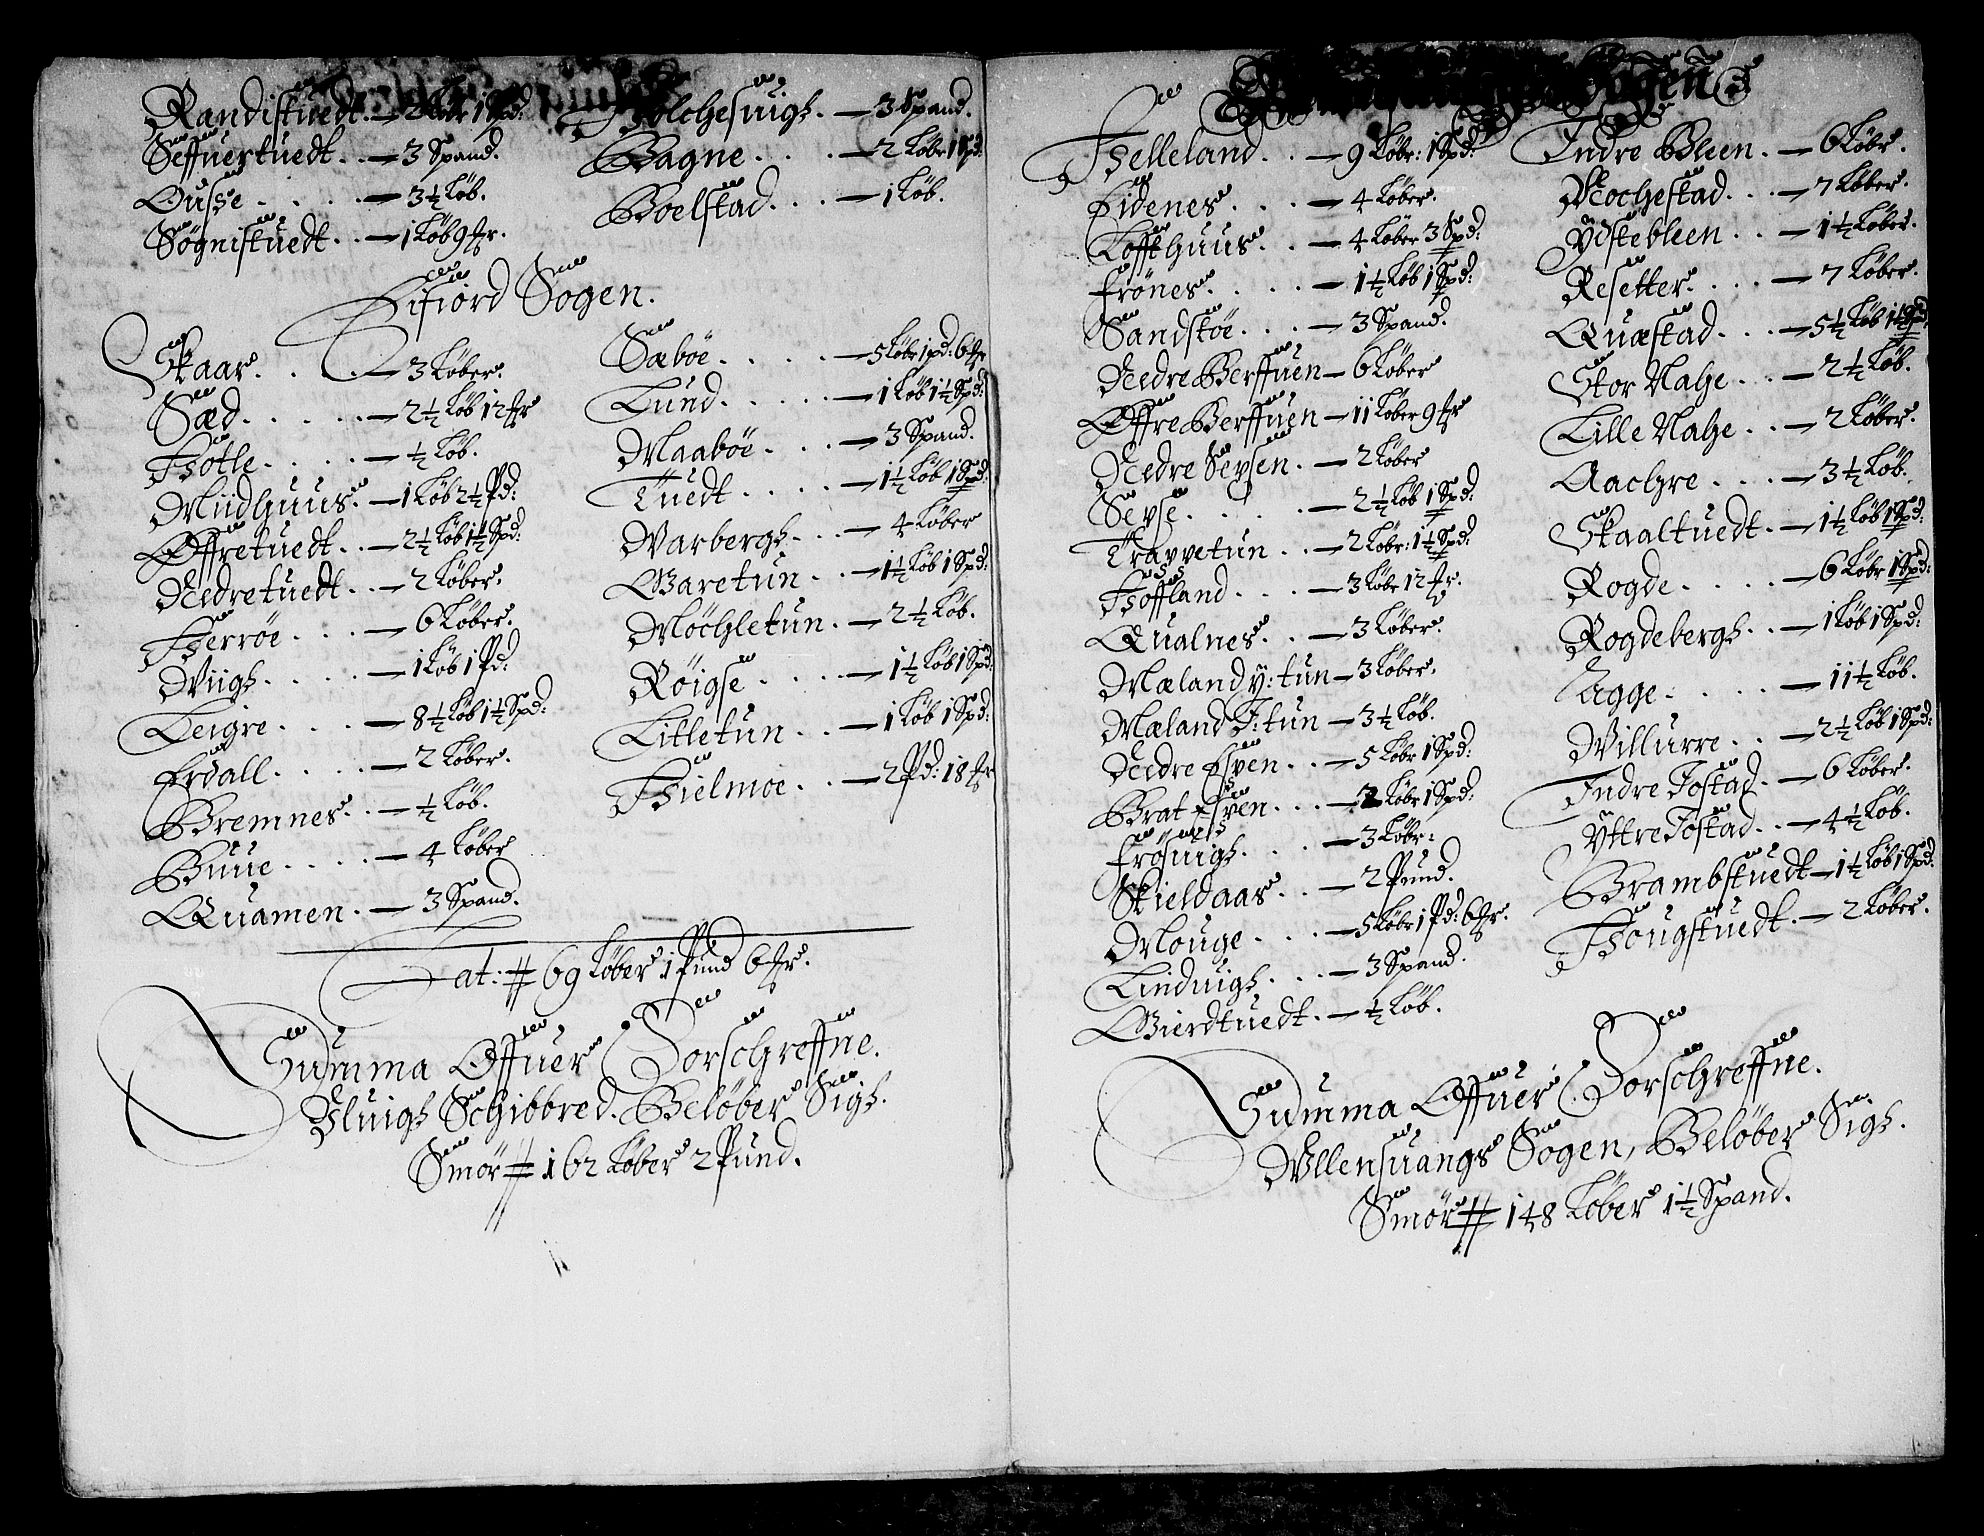 Randistuedt. — 2 Løbr 1 Spd:
Seffuerstuedt. . — 3 Spand.
Ousse . . . . — 3½ Løb.
Søgnistuedt. . — 1 Løb 9 fr.
Holchesuigh. — 3 Spand.
Bagne . . . . — 2 Løbr 1 Spd:
Boelstad. . . — 1 Løb.
Eifiord Sogen.
Skaar. . . — 3 Løber.
Sæd . . . . . — 2½ Løb 12 fr
Hotle. . . . — ½ Løb.
Miidhuus. — 1 Løb 2½ Pd:
Øffretuedt. . — 2½ Løb 1½ Spd:
Nedretuedt. . — 2 Løber.
Herrøe. . . — 6 Løber.
Wiigh. . . . — 1 Løb 1 Pd:
Leigre. . . . — 8½ Løb 1½ Spd:
Erdall. . . . — 2 Løber.
Bremnes. . . — ½ Løb.
Buue. . . . . — 4 Løber
Quamen. — 3 Spand.
Sæbøe. . . . — 5 Løbr 1 pd: 6 fr
Lund. . . . . — 1 Løb 1½ Spd:
Maabøe. . . — 3 Spand.
Tuedt . . . . — 1½ Løb 1 Spd:
Warbergh. . . — 4 Løber
Garetun. . . — 1½ Løb 1 Spd:
Møchletun. — 2½ Løb.
Røigse . . . . — 1½ Løb 1 Spd:
Litletun. . . — 1 Løb 1 Spd:
Hielmoe. . . — 2 Pd: 18 fr
Lat: # 69 Løber 1 Pund 6 fr.
Summa Offuer Dorschreffne.
Aluigh Schibbred. Beløber Sigh.
Smør # 162 Løber 2 Pund.
Sogen
Helleland. . — 9 Løbr: 1 Spd:
Eidenes. . . . — 4 Løber.
Loffthuus. . — 4 Løber 3 Spd:
Frønes. . . . — 1½ Løb 1 Spd:
Sandstøe. . . — 3 Spand.
Nedre Berffuen — 6 Løber
Øffre Berffuen — 11 Løber 9 fr
Nedre Sexsen. — 2 Løber
Sexse. . . . — 2½ Løb 1 Spd:
Trapvetun . . — 2 Løbr: 1½ Spd:
Hoffland . . . — 3 Løbr 12 fr.
Qualnes. . . — 3 Løber.
Mæland y: tun — 3 Løber.
Mæland I: tun — 3½ Løb.
Nedre Espen . . — 5 Løbr 1 Spd:
Brat Espen. . . — 2 Løbr 1 Spd:
Frøsuigh. . . — 3 Løbr:
Skieldaas. . . — 2 Pund.
Mouge. . . — 5 Løbr 1 Pd: 6 fr.
Linduigh. . . — 3 Spand.
Gierdtuedt. — ½ Løb.
Indre Bleen. — 6 Løbr.
Kochestad. . . — 7 Løber.
Ydstebleen . . — 1½ Løber.
Resetter. . . — 7 Løber.
Quæstad. . . — 5½ Løb 1½ Spd
Stor Nahe. . . — 2½ Løb.
Lille Nahe. . — 2 Løber.
Aachre. . . . — 3½ Løb.
Skaaltuedt. — 1½ Løb 1 Spd:
Rogde. . . . — 6 Løbr 1 Spd:
Rogdebergh. . — 1 Løb 1 Spd:
Agge. . . . — 11½ Løb.
Willurre. . — 2½ Løb 1 Spd:
Indre Jostad. — 6 Løber.
Yttre Jostad. . — 4½ Løb.
Brambstuedt — 1½ Løb 1 Spd:
Hougstuedt. — 2 Løber.
Summa Offuer Dorschreffne.
Ullensuangs Sogen, Beløber Sigh.
Smør # 148 Løber 1½ Spand.